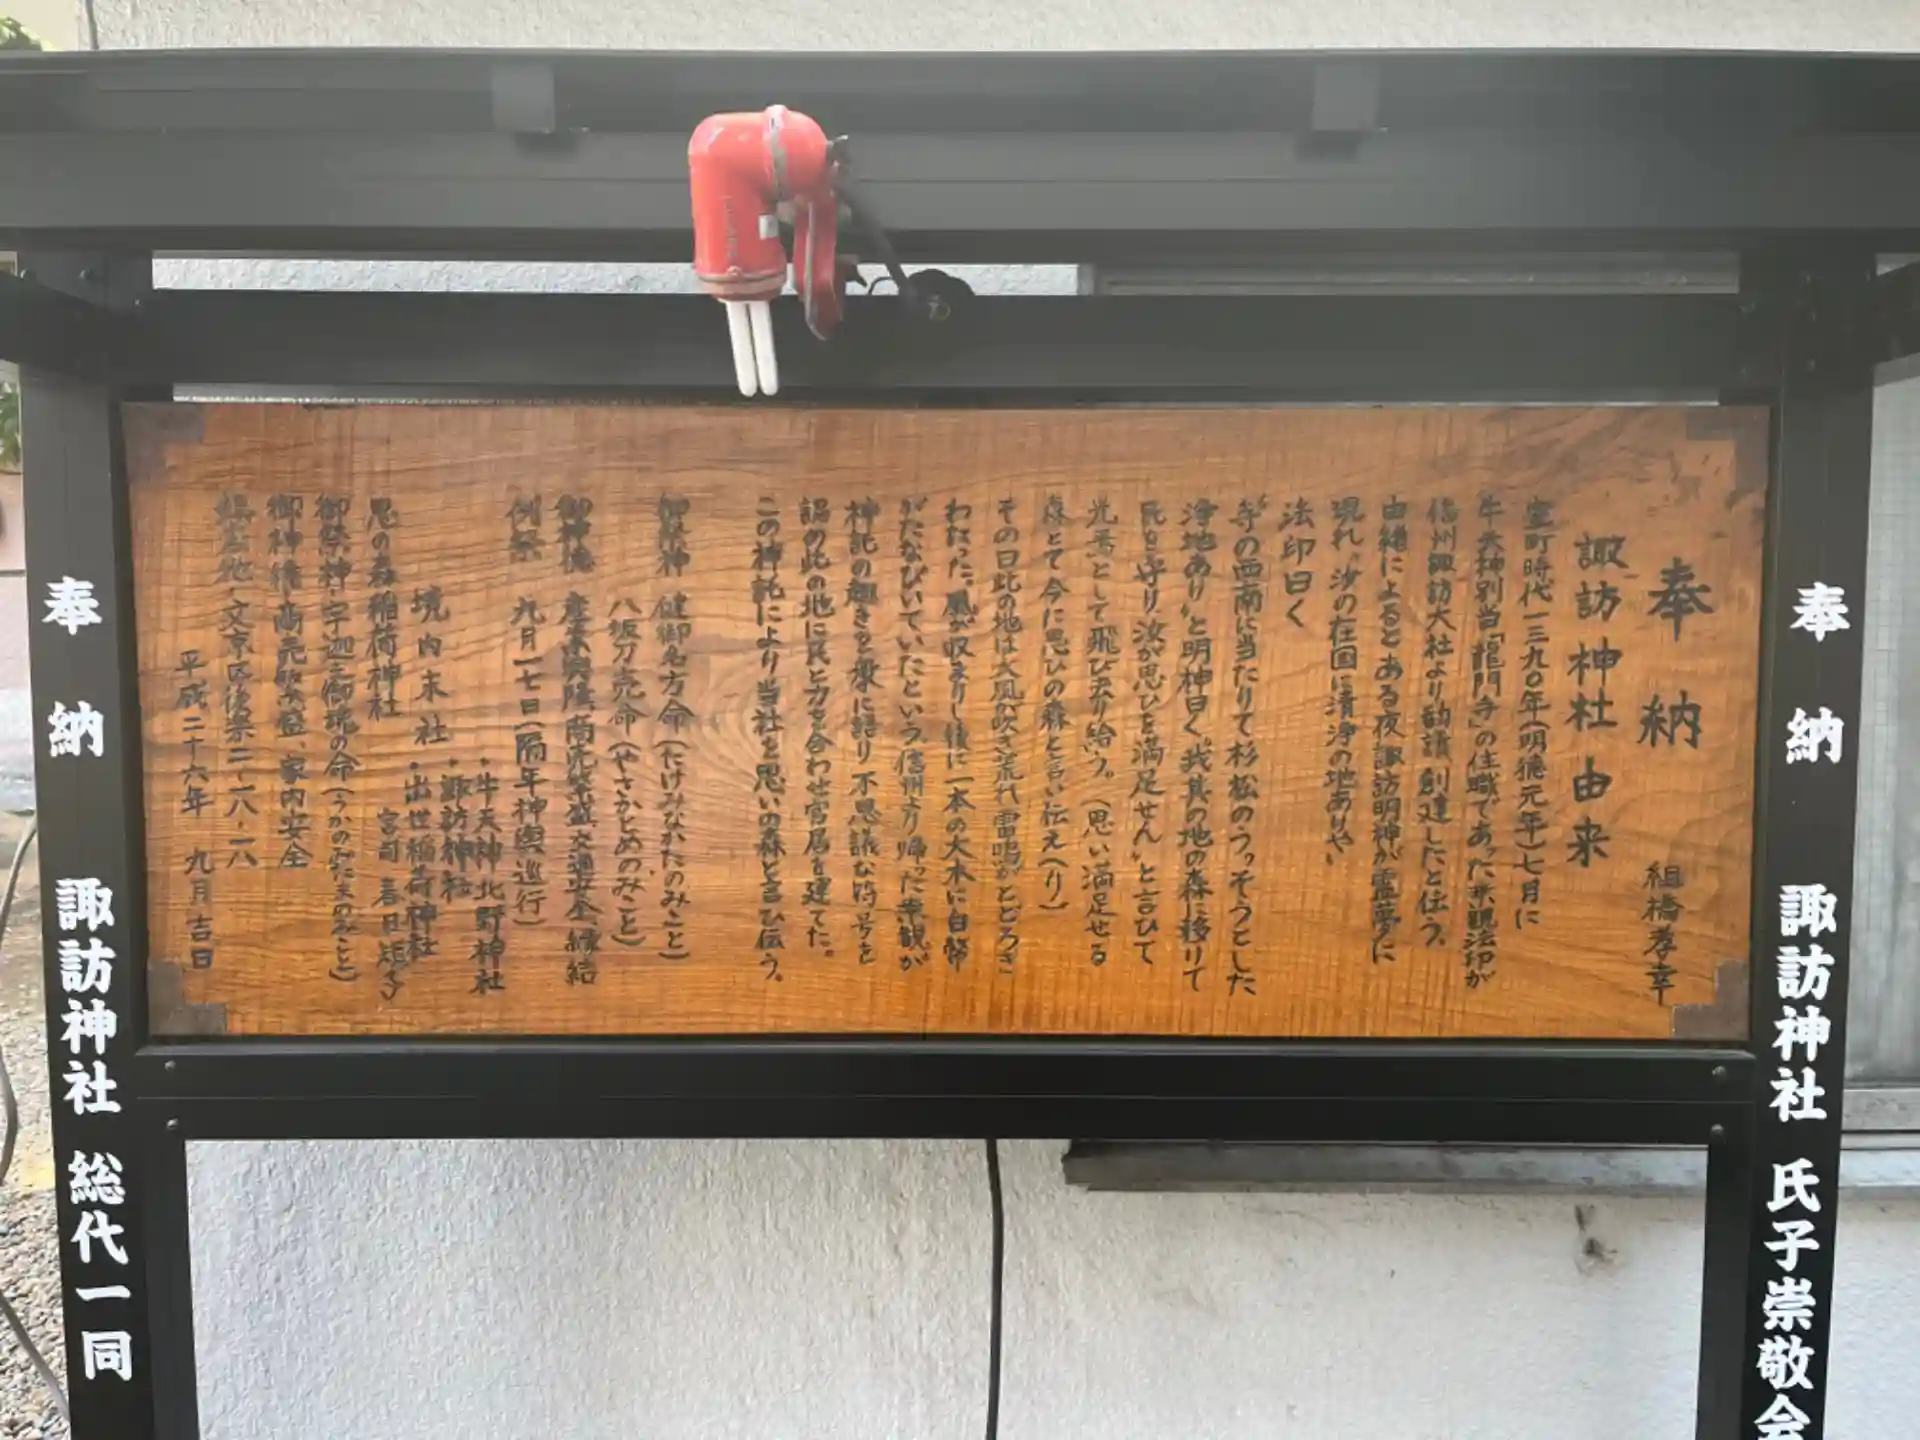 奉納 組橋孝幸
諏訪神社由来
室町時代一三九〇年(明徳元年)七月に
牛天神別当「龍門寺」の住職であった東観法印が
信州諏訪大社より勧請創建したと伝う。
由緒によるとある夜諏訪明神が霊夢に
現れ〝汝の在国に清浄の地ありや〟
法印曰く
〝寺の西南に当たりて杉松のうっそうとした
浄地あり〟と明神曰く〝我其の地の森に移りて
民を守り汝が思ひを満足せん〟と言ひて
光焉として飛び去り給う。(思い満足せる
森とて今に思ひの森と言い伝え(り)
その日此の地は大風吹き荒れ雷鳴がとどろき
わたった。風が収まりし後に一本の大木に白幣
がたなびいていたという。信州より帰った東観が
神託の趣きを衆に語り不思議な符号を
認め此の地に民と力を合わせ宮居を建てた。
この神託により当社を思いの森と言ひ伝う。
御祭神 健御名方命(たけみなかたのみこと)
八坂刀売命(やさかとめのみこと)
御神徳 産業興隆、商売繁盛、交通安全、縁結
例祭 九月二七日(隔年神輿巡行)
境内末社・牛天神北野神社
・諏訪神社
・出世稲荷神社
思の森稲荷神社 宮司 春日矩子
御祭神・宇迦之御魂の命(うかのみたまのみこと)
御神徳・商売繁盛、家内安全
鎮座地・文京区後楽二-一八-一八
平成二十六年 九月吉日
奉納 諏訪神社 氏子崇敬会
奉納 諏訪神社 総代一同